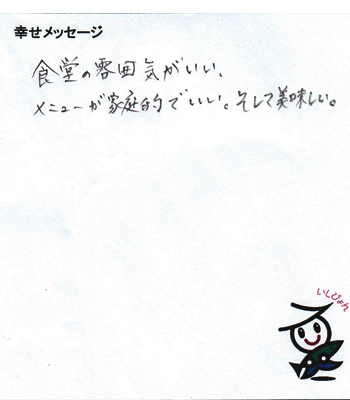 幸せメッセージ
食堂の雰囲気がいい、
メニューが家庭的でいい。そして美味しい。
いしぴょん